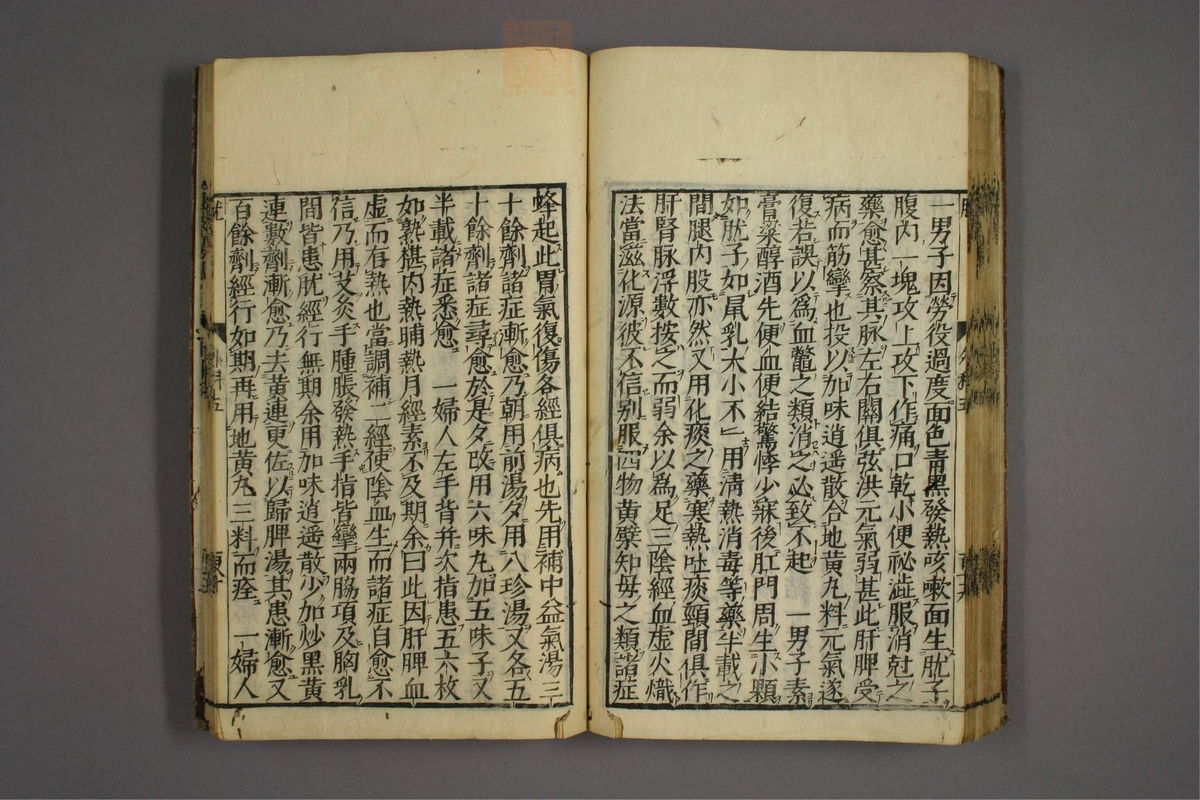 一男子因勞役過度面色青黑發熱咳嗽面生肬子
腹内一塊攻上攻下作痛口乾小便祕澁服消尅之
藥愈甚察其脉左右關俱弦洪元氣弱甚此肝脾受
病而筋攣也投以加味逍遥散合地黄丸料元氣遂
復若誤以爲血鼈之類消之必致不起　一男子素
膏粱醇酒先便血便結驚悸少寐後肛門周生小顆
如肬子如鼠乳大小不一用淸熱消毒等藥半載之
間腿内股亦然又用化痰之藥寒熱吐痰頸間俱作
肝腎脉浮數按之而弱余以爲足三陰經血虚火熾
法當滋化源彼不信别服四物黄蘗知母之類諸症
蜂起此胃氣復傷各經俱病也先用補中益氣湯三
十餘劑諸症漸愈乃朝用前湯夕用八珍湯又各五
十餘劑諸症尋愈於是夕改用六味丸加五味子又
半載諸症悉愈　一婦人左手背并次指患五六枚
如熟椹内熱晡熱月經素不及期余曰此因肝脾血
虚而有熱也當調補二經使陰血生而諸症自愈不
信乃用艾灸手腫脹發熱手指皆攣兩脇項及胸乳
間皆患肬經行無期余用加味逍遥散少加炒黑黄
連數劑漸愈乃去黄連更佐以歸脾湯其患漸愈又
百餘劑經行如期再用地黄丸三料而痊　一婦人